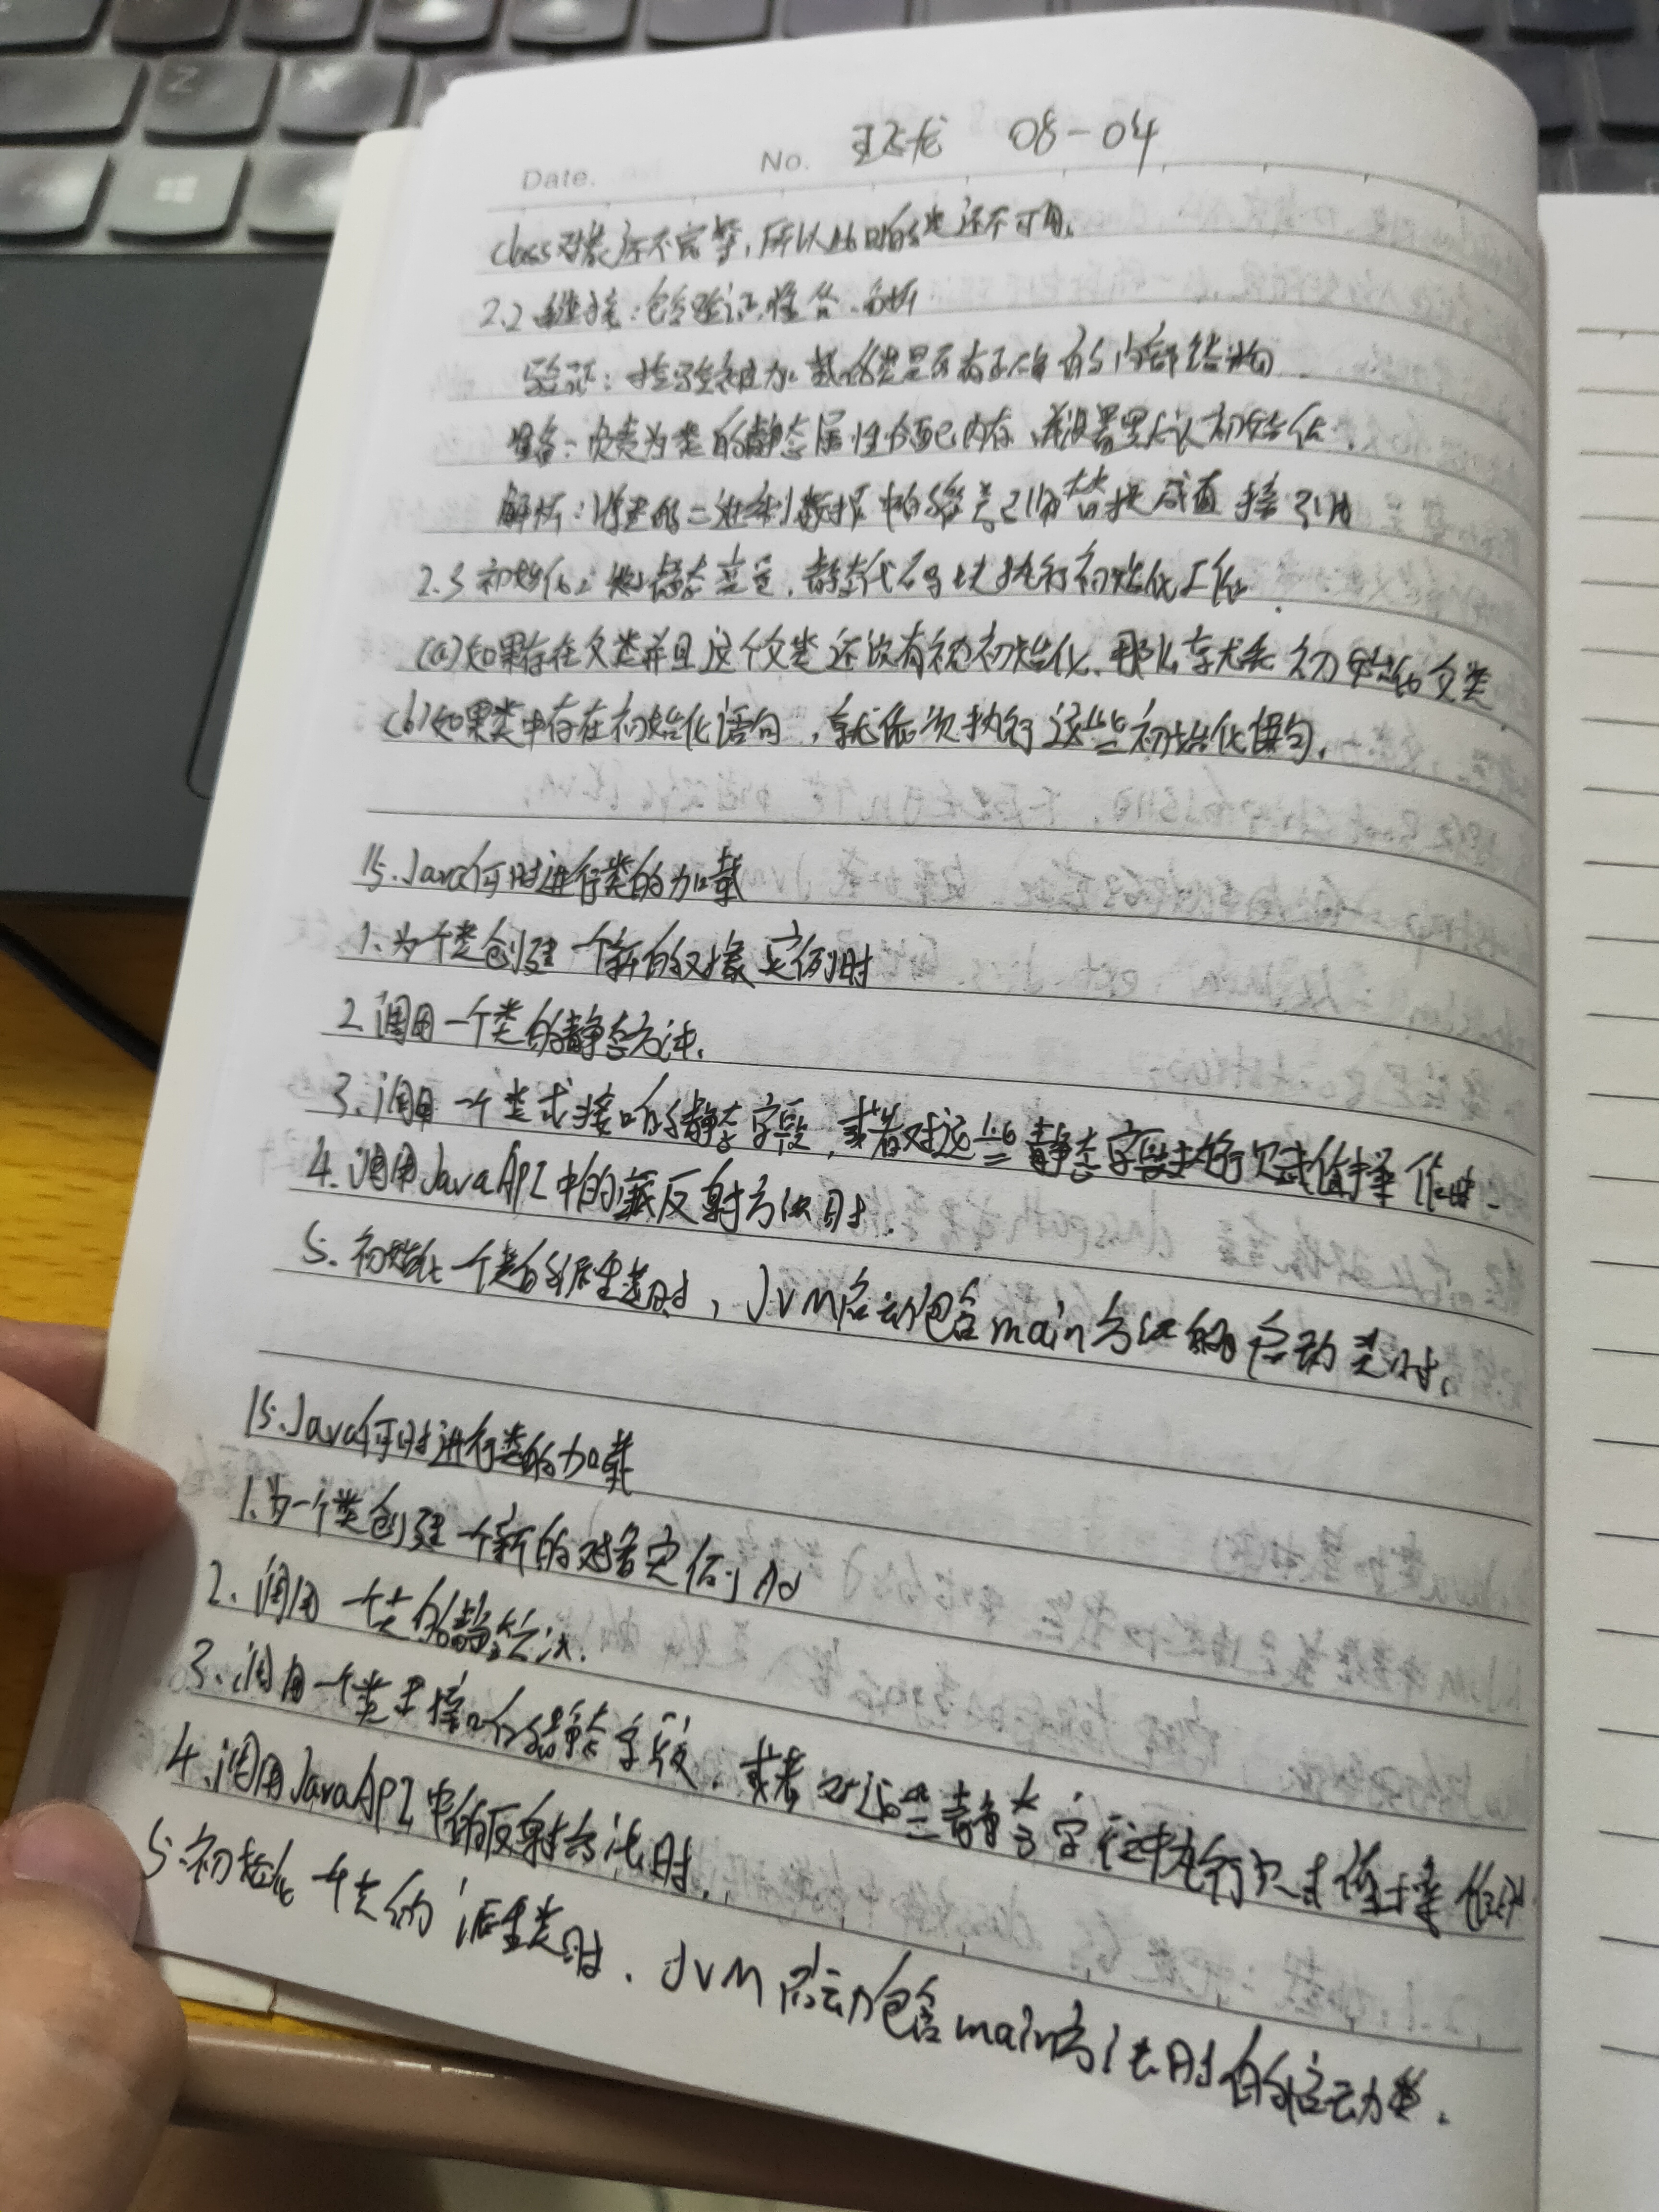 Date. No. 王飞龙 08-04
class对象还不完整,所以此时的类还不可用。
2.2 链接:包含验证、准备、解析
验证:检验被加载的类是否有正确的内部结构
准备:负责为类的静态属性分配内存,并设置默认初始值。
解析:将类的二进制数据中的符号引用替换成直接引用
2.3 初始化:静态变量,静态代码块执行初始化工作
(a)如果存在父类并且这个父类还没有被初始化,那么就先初始化父类
(b)如果类中存在初始化语句,就依次执行这些初始化语句。
15.Java何时进行类的加载
1.为个类创建一个新的对象实例时
2.调用一个类的静态方法.
3.调用一个类或接口的静态字段,或者对这些静态字段执行赋值操作时.
4.调用JavaAPI中的某反射方法时.
5.初始化一个类的派生类时,JVM启动包含main方法的启动类时。
15.Java何时进行类的加载
1.为一个类创建一个新的对象实例时
2.调用一个类的静态方法.
3.调用一个类或接口的静态字段,或者对这些静态字段执行赋值操作时
4.调用JavaAPI中的反射方法时.
5.初始化一个类的派生类时.JVM启动包含main方法时的启动类.